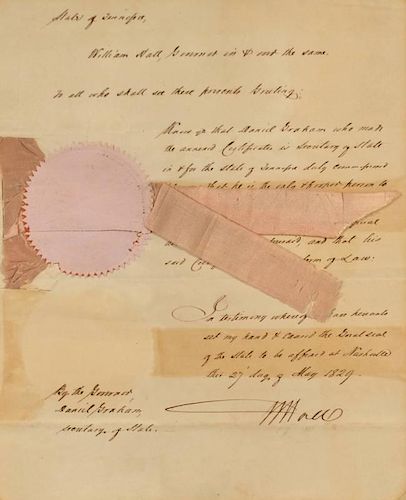 State of Tennessee,
William Hall Governor in & over the same
To all who shall see these presents Greeting;
Know ye that Daniel Graham who made
the annexed Certificate is Secretary of State
in & for the State of Tennessee duly commissioned
that he is the only & proper person to
and that his
said form of Law:
In testimony whereof I have hereunto
set my hand & caused the Great seal
of the State to be affixed at Nashville
this 27 day of May 1829.
By the Governor,
Daniel Graham,
Secretary of State.
Wm Hall